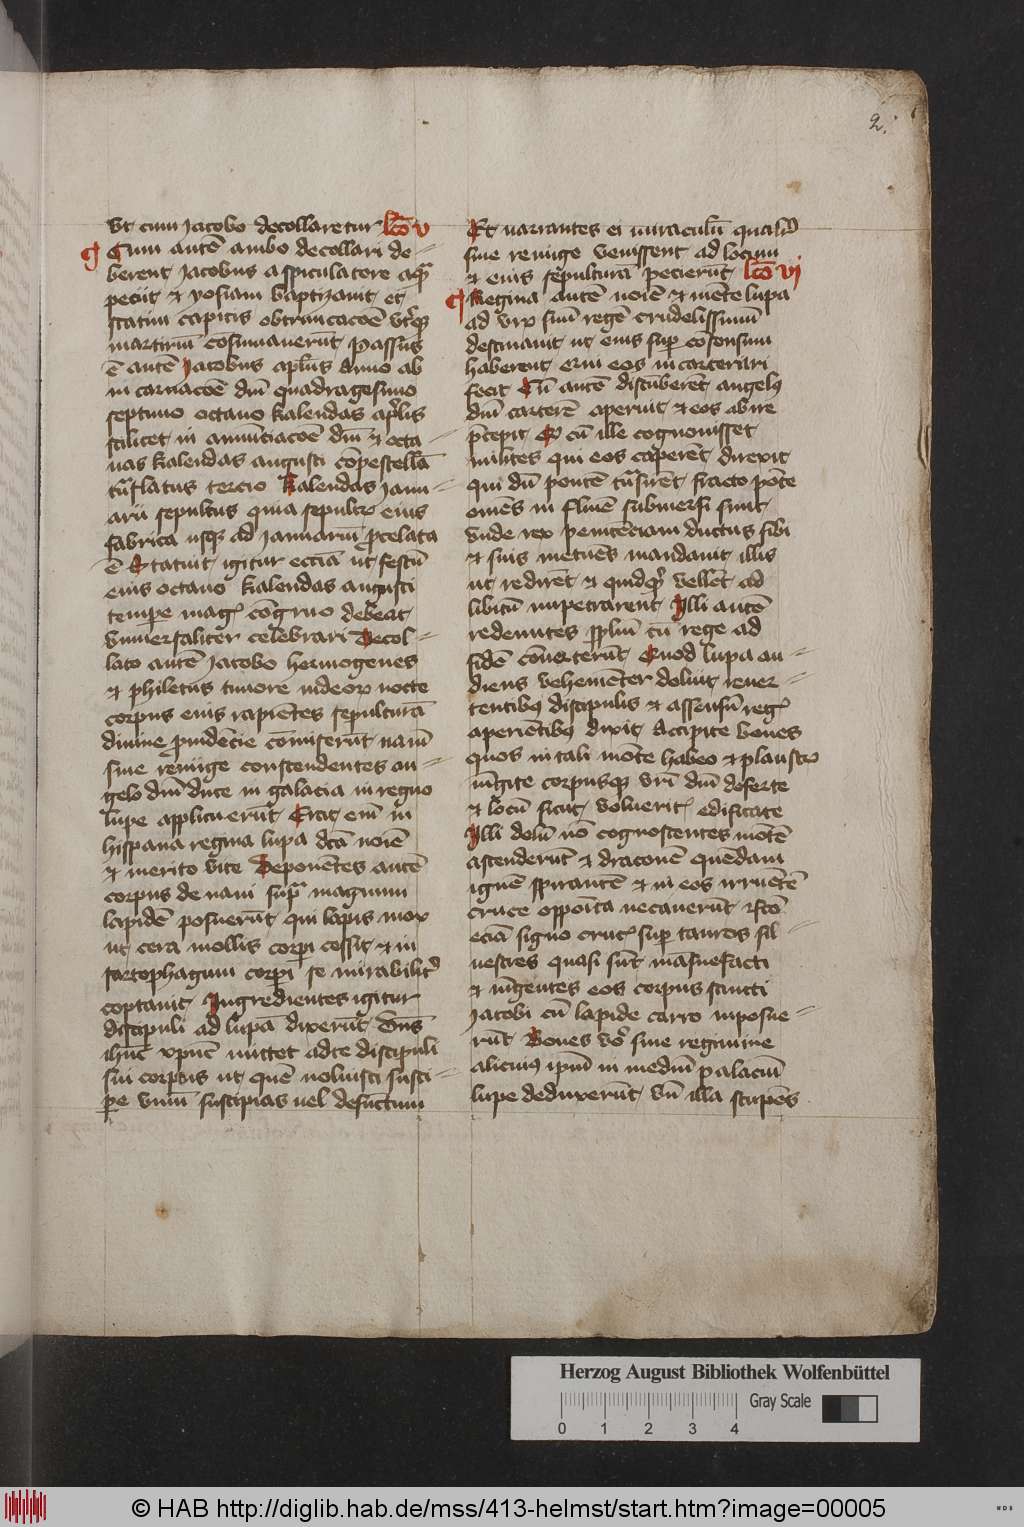 2.
Vt cum Jacobo decollaretur lcō v
Cum autē ambo decollari de-
berent Jacobus a spiculatore aquā
peciit et yosiam baptizauit et
statim capitis obtruncacōe vterque
martiriū cōsummauerūt Passus
ē autē Jacobus aplūs Anno ab
in carnacōe dnī quadragesimo
septimo octauo kalendas aprilis
scilicet in annūciacōe dnī et octa-
uas kalendas augusti cōpostellā
trāslatus tercio kalendas Janu-
arii sepultus quia sepulcri eius
fabrica usque ad Januariū protelata
ē Statuit igitur eccīa ut festū
eius octauo kalendas augusti
tempore magis cōgruo debeat
vniuersaliter celebrari Decol-
lato autē Jacobo hermogenes
et philetus timore iudeorum nocte
corpus eius rapiētes sepulturā
diuine prudēcie cōmiserūt nauī
sine remige conscendentes an-
gelo dnī duce in galacia in regno
lupe applicuerūt Erat enī in
hispana regina lupa dcā noīe
et merito vite Deponētes autē
corpus de naui supra magnum
lapidē posuerūt qui lapis mox
ut cera mollis corpi cessit et in
sartophagum corpi se mirabilitr
coptauit Ingredientes igitur
discipuli ad lupā dixerūt Dns
ihūc xpūc mittet ad te discipuli
sui corpus ut quē noluisti susci-
pe viuū suscipias uel defuctum
Et narrantes ei miraculū qualit
sine remige venissent ad locum
et eius sepultura pecierūt lcō vi
Regina autē noīe et mēte lupa
ad virum suū regē crudelissimū
destinauit ut eius super cōsensum
haberent Qui eos in carcerari
fecit Cū autē discuberēt angelus
dnī carcerē aperuit et eos abire
precepit Et cū ille cognouisset
milites qui eos caperēt direxit
qui dū pontē trāsirēt fracto pōte
omēs in flumē submersi sunt
vnde rex penitēciam ductus sibi
et suis metuēs mandauit illis
ut redirēt et quidquid vellēt ad
libitū impetrarent Illi autē
redeuntes pplm cū rege ad
fidē cōuerterūt Quod lupa au-
diens vehemēter doluit reuer-
tentibus discipulis et assensū regis
aperiētibus dixit Accipite boues
quos in tali mōte habeo et plaustro
iūgite corpusque vrī dnī deferte
et locū sicut volueritis edificate
Illi dolū nō cognoscentes mōtē
ascenderūt et draconē quēdam
ignē spirantē et in eos irruētē
cruce oppoīta necauerūt
eciā signo crucis super tauros sil-
uestres quasi sūt māsuefacti
et iūgentes eos corpus sancti
Jacobi cū lapide carro inposue-
rūt Boues vero sine regimine
alicuius ipm̄ in mediū palaciū
lupe deduxerūt vn̄ illa stupēs
Herzog August Bibliothek Wolfenbüttel
0 1 2 3 4 Gray Scale
© HAB http://diglib.hab.de/mss/413-helmst/start.htm?image=00005
WDB